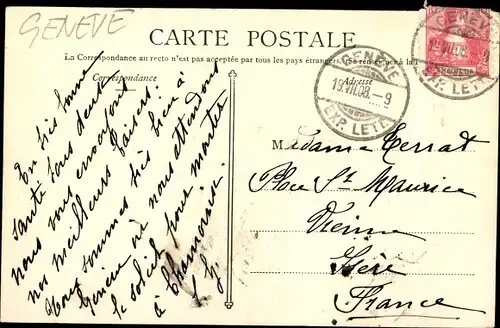 GENEVE
CARTE POSTALE
La Correspondance au recto n'est pas acceptée par tous les pays étrangers. (Se renseigner à la
Correspondance
Adresse
GENÈVE
19.VII.08.-9
EXP. LETT.
GENÈVE
VII.08.
EXP. LETT.
En très bonne
santé tous deux
nous vous envoyons
nos meilleurs baisers.
Nous sommes très bien à
Genève où nous attendons
le soleil pour monter
à Chamonix.
Madame Terrat
Place St Maurice
Vienne
Isère
France